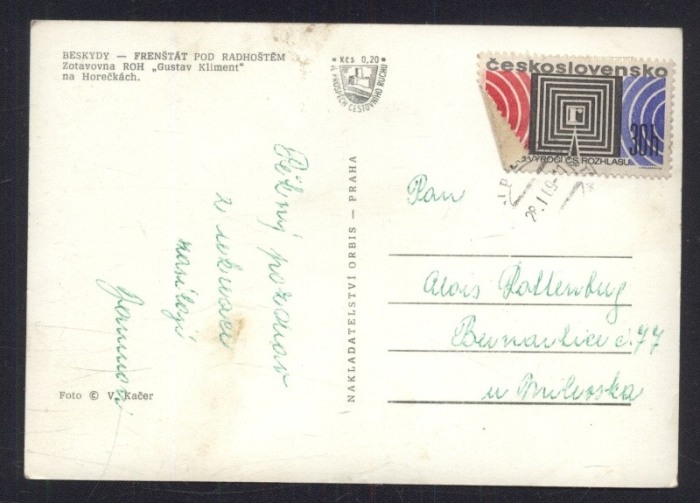 BESKYDY — FRENŠTÁT POD RADHOŠTĚM
Zotavovna ROH „Gustav Kliment"
na Horečkách.
Kčs 0,20
VE PROSPĚCH CESTOVNÍHO RUCHU
československo
30h
VÝROČÍ ČS. ROZHLASU
Pěkný pozdrav
z rekreace
zasílají
NAKLADATELSTVÍ ORBIS — PRAHA
Pan
Alois Kattenburg
Bernartice č. 77
u Milevska
Foto © V. Kačer